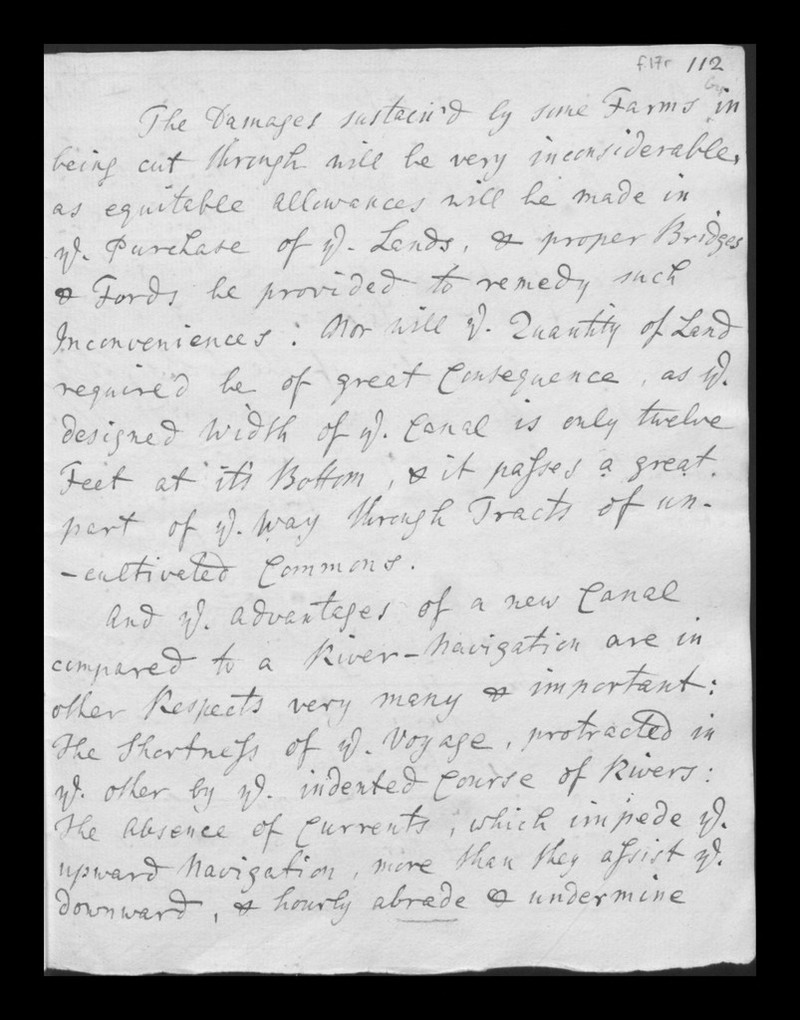 f17r 112
The Damages sustain'd by some Farms in
being cut through will be very inconsiderable,
as equitable allowances will be made in
ye. Purchase of ye. Lands, & proper Bridges
& Fords be provided to remedy such
Inconveniences: Nor will ye. Quantity of Land
requir'd be of great Consequence, as ye.
designed Width of ye. Canal is only twelve
Feet at it's Bottom, & it passes a great
part of ye. Way through Tracts of un-
-cultivated Commons.
And ye. advantages of a new Canal
compared to a River-Navigation are in
other Respects very many & important:
The Shortness of ye. Voyage, protracted in
ye. other by ye. indented Course of Rivers:
The Absence of Currents, which impede ye.
upward Navigation, more than they assist ye.
downward, & hourly abrade & undermine